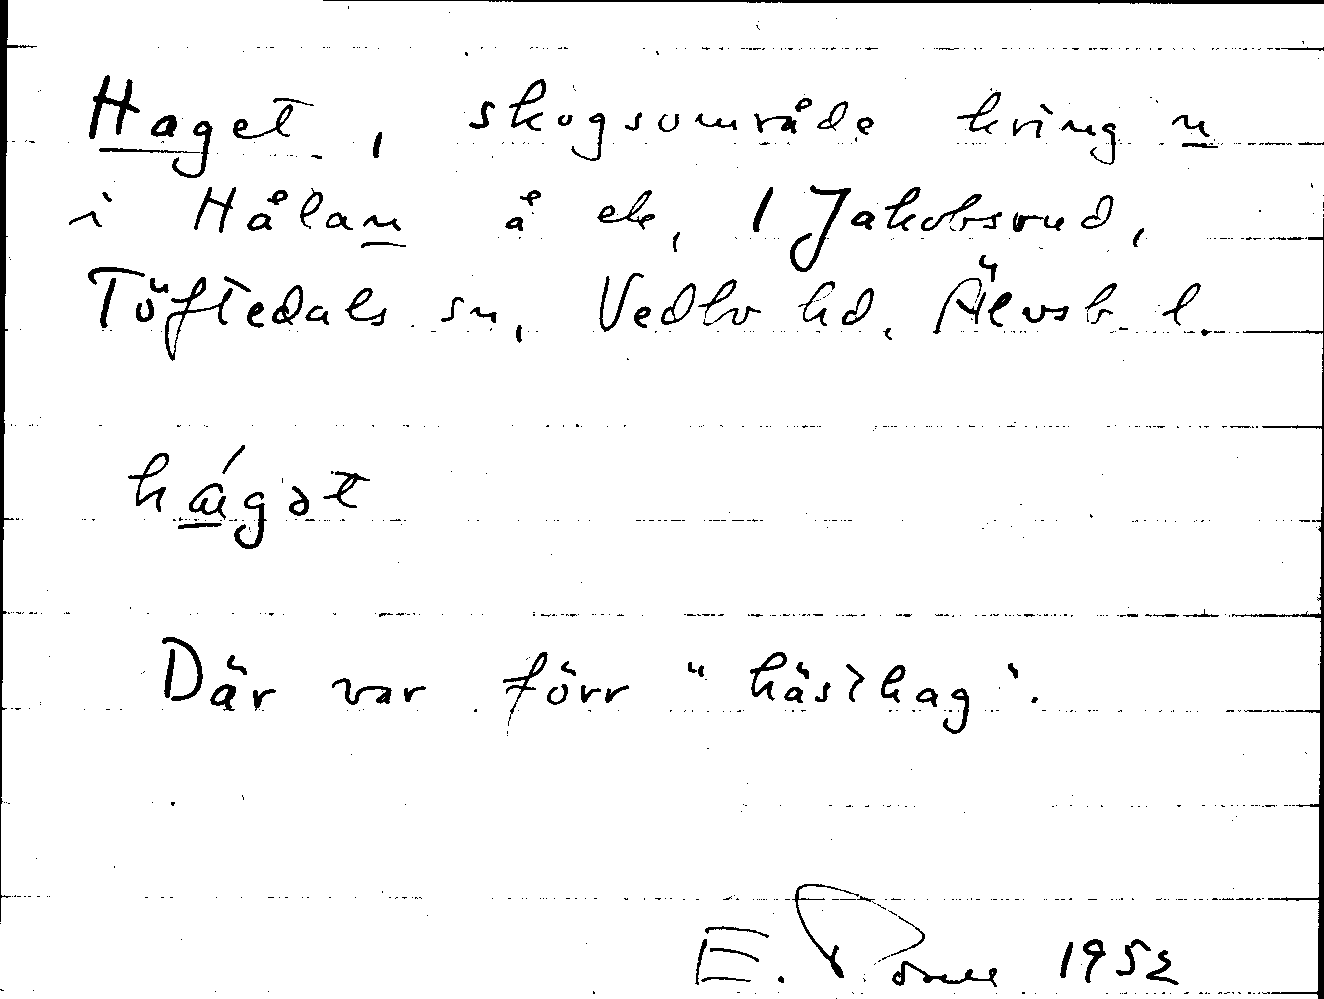 Haget, skogsområde kring n
i Hålan å ek, 1 Jakobsrud,
Töftedals sn, Vedbo hd. Älvsb. l.
hágət
Där var förr "hästhag".
E. 1952